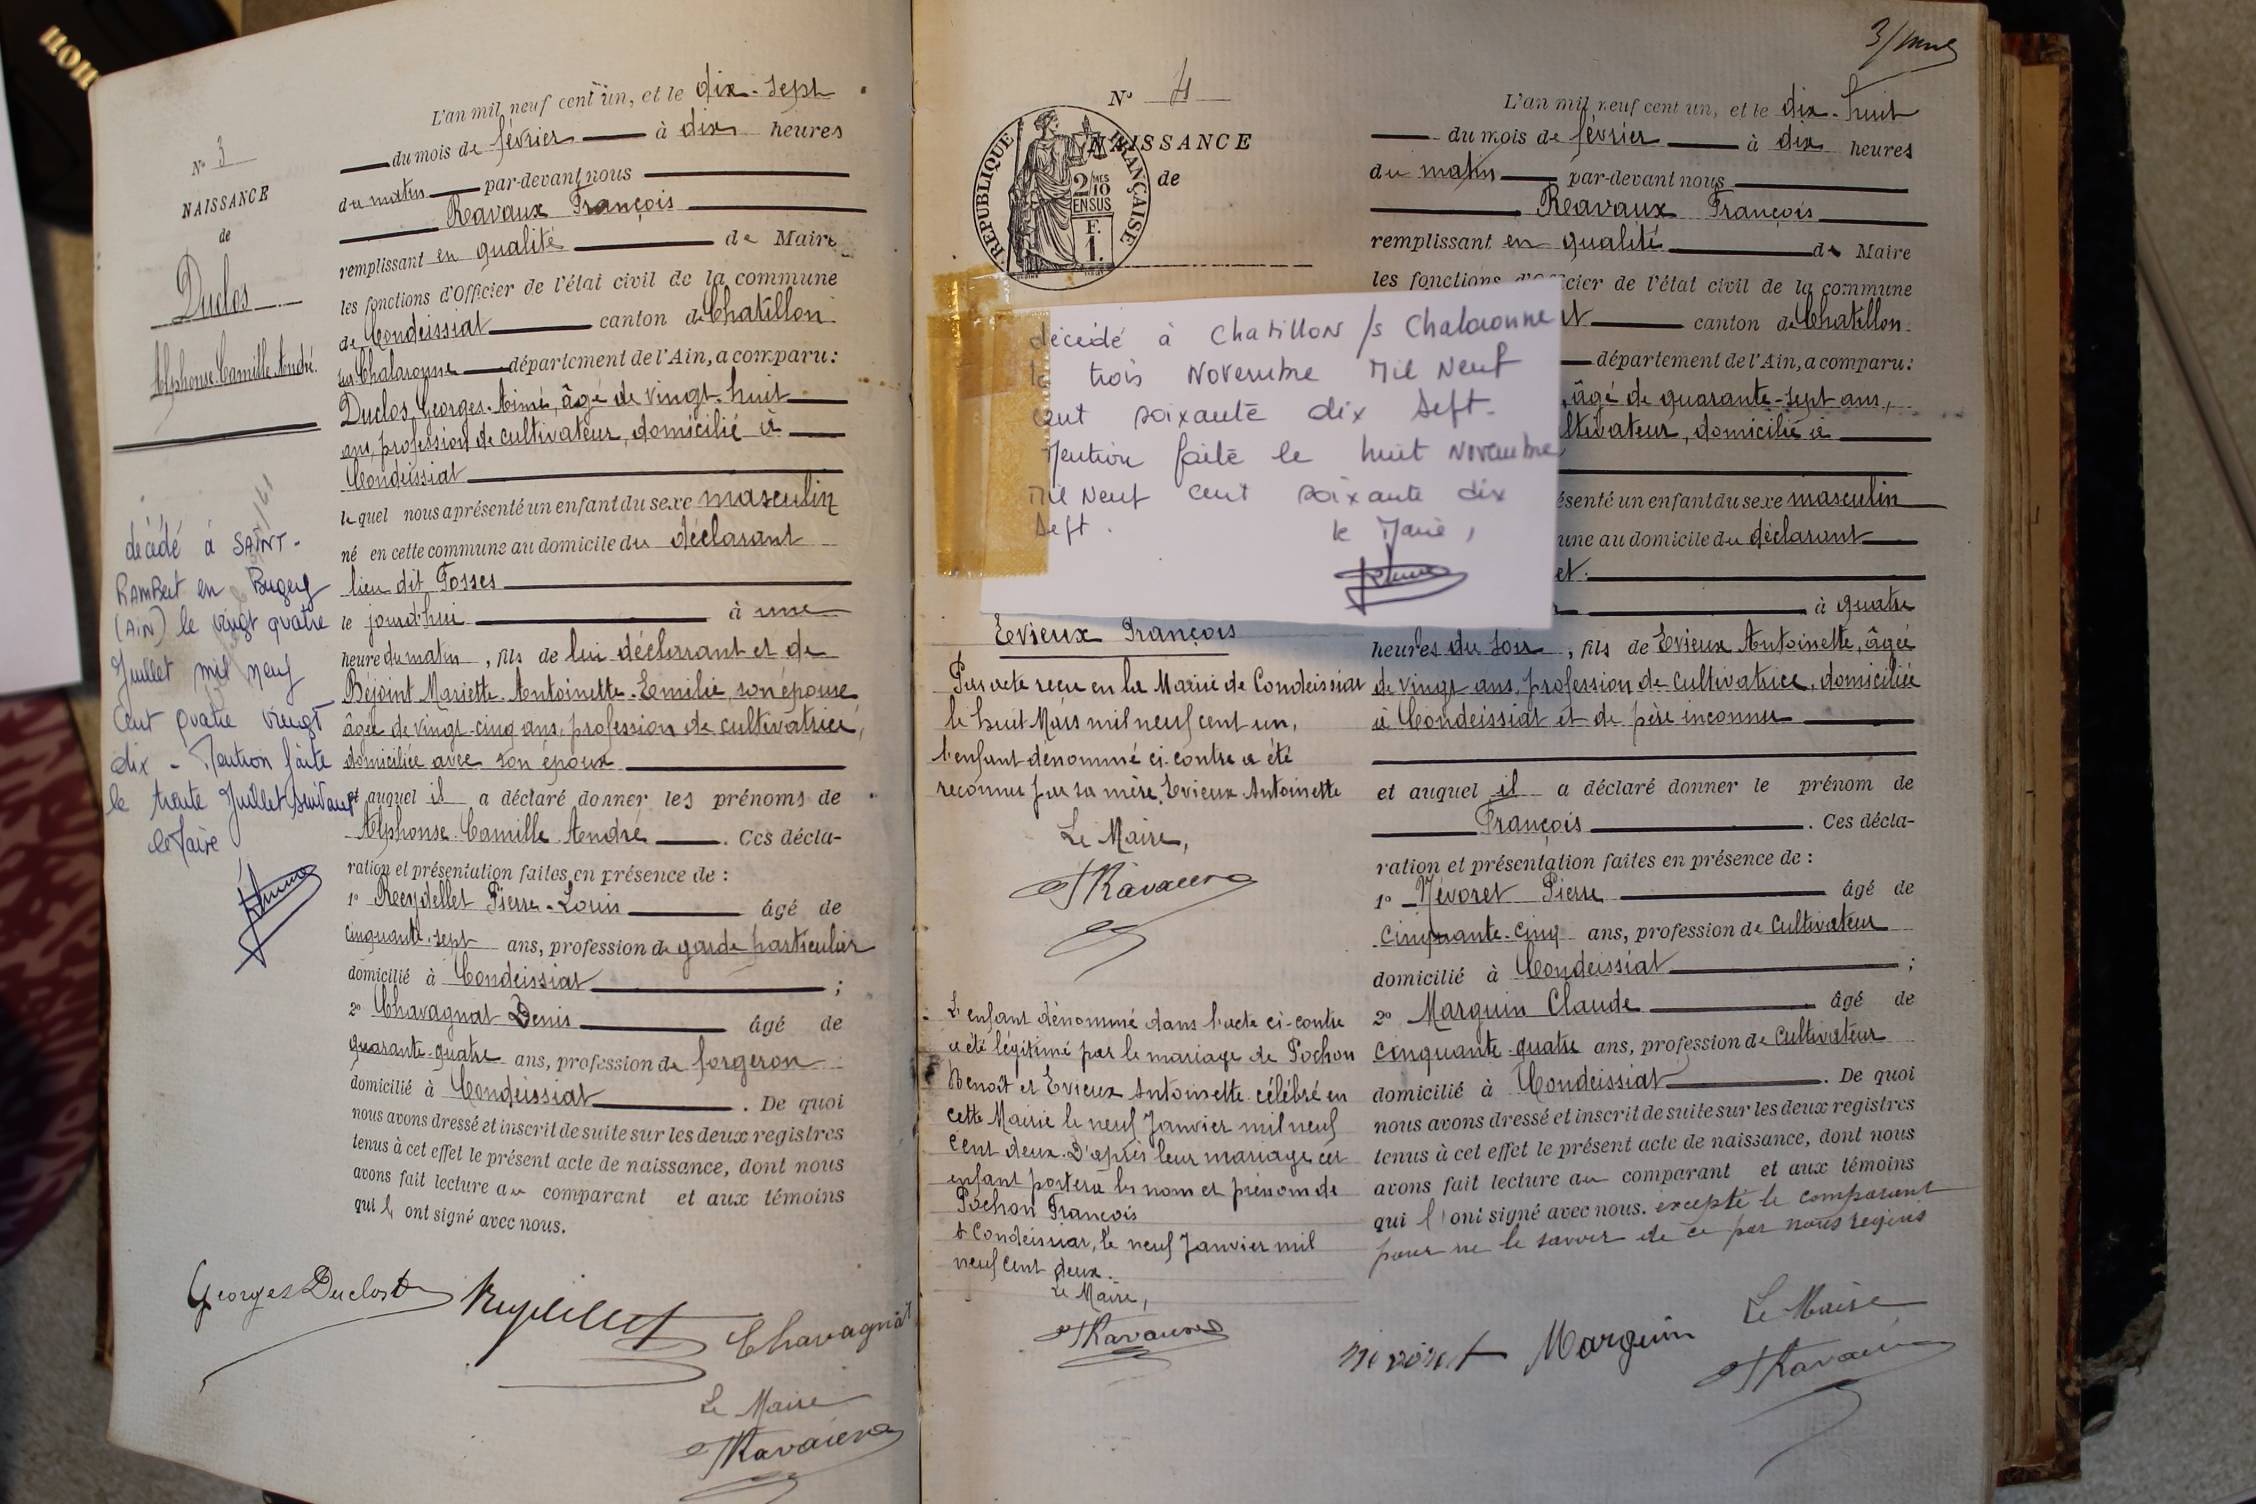 non
N° 3
NAISSANCE
de
Duclos
Alphonse-Camille-André.
décédé à SAINT-
RAMBERT en Bugey
(AIN) le vingt quatre
Juillet mil neuf
Cent quatre vingt
dix - Mention faite
le trente Juillet suivant
le Maire
L'an mil neuf cent un, et le dix-sept
du mois de février à dix heures
du matin par-devant nous
Ravaux François
remplissant en qualité de Maire
les fonctions d'Officier de l'état civil de la commune
de Condeissiat canton de Chatillon
sur Chalaronne département de l'Ain, a comparu :
Duclos Georges-Aimé, âgé de vingt-huit
ans, profession de cultivateur, domicilié à
Condeissiat
lequel nous a présenté un enfant du sexe masculin
né en cette commune au domicile du déclarant
lieu dit Fosses
le jourd'hui à une
heure du matin, fils de lui déclarant et de
Béjoint Mariette-Antoinette-Emilie, son épouse
âgée de vingt-cinq ans, profession de cultivatrice,
domiciliée avec son époux
et auquel il a déclaré donner les prénoms de
Alphonse-Camille-André. Ces décla-
ration et présentation faites en présence de :
1° Reydellet Pierre-Louis âgé de
cinquante-sept ans, profession de garde particulier
domicilié à Condeissiat ;
2° Chavagnat Denis âgé de
quarante-quatre ans, profession de forgeron
domicilié à Condeissiat. De quoi
nous avons dressé et inscrit de suite sur les deux registres
tenus à cet effet le présent acte de naissance, dont nous
avons fait lecture au comparant et aux témoins
qui l ont signé avec nous.
Georges Duclos
Reydellet
Chavagnat
Le Maire
FRavaux
3/
N° 4
NAISSANCE
de
RÉPUBLIQUE FRANÇAISE
2/10 MES
EN SUS
F.
1.
décédé à Chatillon /s Chalaronne
le trois Novembre Mil Neuf
cent soixante dix Sept.
Mention faite le huit Novembre
Mil Neuf cent soixante dix
Sept.
le Maire,
Evieux François
Par acte reçu en la Mairie de Condeissiat
le huit Mars mil neuf cent un,
l'enfant dénommé ci-contre a été
reconnu par sa mère, Evieux Antoinette
Le Maire,
FRavaux
L'enfant dénommé dans l'acte ci-contre
a été légitimé par le mariage de Pochon
Benoît et Evieux Antoinette célébré en
cette Mairie le neuf Janvier mil neuf
cent deux. D'après leur mariage cet
enfant portera les nom et prénom de
Pochon François
A Condeissiat, le neuf Janvier mil
neuf cent deux.
Le Maire,
FRavaux
L'an mil neuf cent un, et le dix-huit
du mois de février à dix heures
du matin par-devant nous
Ravaux François
remplissant en qualité de Maire
les fonctions d'Officier de l'état civil de la commune
t canton de Chatillon-
département de l'Ain, a comparu :
, âgé de quarante-sept ans,
ltivateur, domicilié à
ésenté un enfant du sexe masculin
une au domicile du déclarant
et.
à quatre
heures du soir, fils de Evieux Antoinette, âgée
de vingt ans, profession de cultivatrice, domiciliée
à Condeissiat et de père inconnu
et auquel il a déclaré donner le prénom de
François. Ces décla-
ration et présentation faites en présence de :
1° Névoret Pierre âgé de
cinquante-cinq ans, profession de cultivateur
domicilié à Condeissiat ;
2° Marguin Claude âgé de
cinquante-quatre ans, profession de cultivateur
domicilié à Condeissiat. De quoi
nous avons dressé et inscrit de suite sur les deux registres
tenus à cet effet le présent acte de naissance, dont nous
avons fait lecture au comparant et aux témoins
qui l'ont signé avec nous. excepté le comparant
pour ne le savoir de ce par nous requis
Névoret Marguin
Le Maire
FRavaux